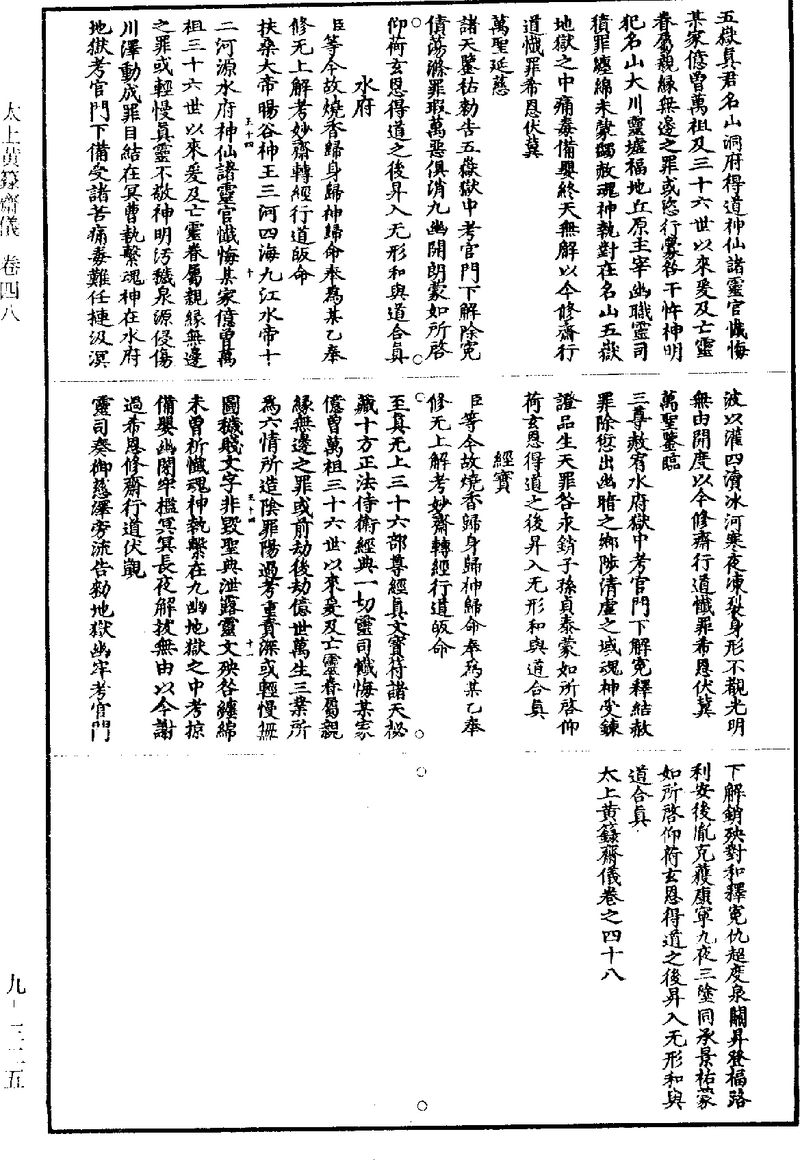 五嶽真君名山洞府得道神仙諸靈官懺悔
某家億曾萬祖及三十六世以來爰及亡靈
眷屬親緣無邊之罪或恣行蒙咎干忤神明
犯名山大川靈墟福地丘原主宰幽職靈司
積罪纏綿未蒙蠲赦魂神執對在名山五嶽
地獄之中痛毒備嬰終天無解以今修齋行
道懺罪希恩伏冀
萬聖延慈
諸天鑒祐勑告五嶽獄中考官門下解除冤
債蕩滌罪瑕萬惡俱消九幽開朗蒙如所啓
仰荷玄恩得道之後昇入无形和與道合真
水府
臣等今故燒香歸身歸神歸命奉為某乙奉
修无上解考妙齋轉經行道皈命
扶桑大帝暘谷神王三河四海九江水帝十
二河源水府神仙諸靈官懺悔某家億曾萬
祖三十六世以來爰及亡靈眷屬親緣無邊
之罪或輕慢真靈不敬神明汚穢泉源侵傷
川澤動成罪目結在冥曹執繫魂神在水府
地獄考官門下備受諸苦痛毒難任揵汲溟
波以灌四瀆冰河寒夜凍裂身形不覩光明
無由開度以今修齋行道懺罪希恩伏冀
萬聖鑒臨
三尊赦宥水府獄中考官門下解冤釋結赦
罪除愆出幽暗之鄉陟清虛之域魂神受鍊
證品生天罪咎永銷子孫貞泰蒙如所啓仰
荷玄恩得道之後昇入无形和與道合真
經寶
臣等今故燒香歸身歸神歸命奉為某乙奉
修无上解考妙齋轉經行道皈命
至真无上三十六部尊經真文寶符諸天祕
藏十方正法侍衛經典一切靈司懺悔某家
億曾萬祖三十六世以來爰及亡靈眷屬親
緣無邊之罪或前劫後劫億世萬生三業所
為六情所造陰罪陽過考重責深或輕慢無
圖穢賤文字非毀聖典泄露靈文殃咎纏綿
未曾祈懺魂神執繫在九幽地獄之中考掠
備嬰幽閉牢檻冥冥長夜解拔無由以今謝
過希恩修齋行道伏覬
靈司奏御慈澤旁流告勑地獄幽牢考官門
下解銷殃對和釋冤仇超度泉關昇登福路
利安後胤克蒦康寧九夜三塗同承景祐蒙
如所啓仰荷玄恩得道之後昇入无形和與
道合真
太上黃籙齋儀卷之四十八
五十四
十
五十四
十一
太上黃籙齋儀 卷四八
九-三二五